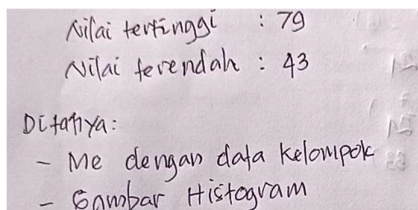 Nilai tertinggi : 79
Nilai terendah : 43
Ditanya:
- Me dengan data kelompok
- Gambar Histogram